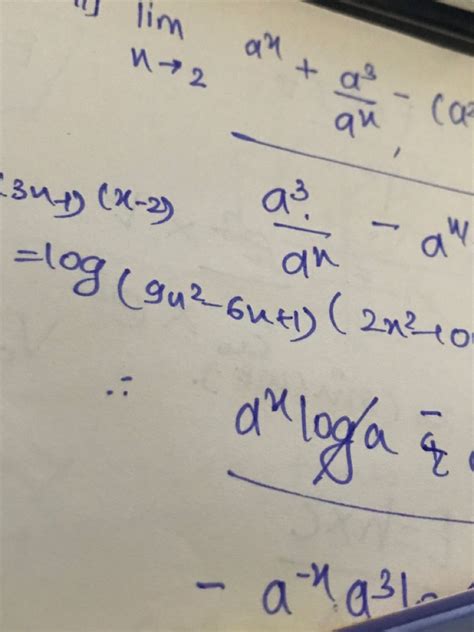 lim
x→2 a^x + a^3/a^x - (a^2
(3x-1)(x-2) a^3/a^x - a^x/
=log(9x^2-6x+1)(2x^2-10
∴
a^x log a
- a^-x. a^3 l